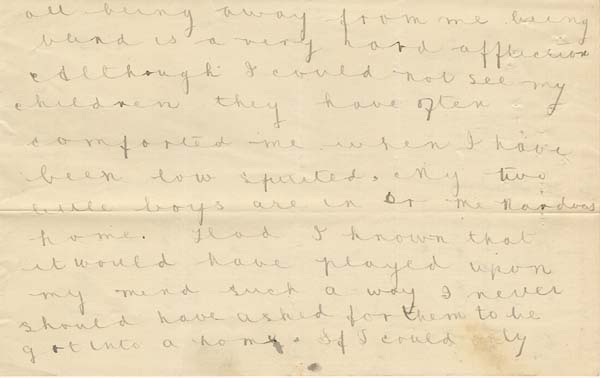 all being away from me being
blind is a very hard affliction
Although I could not see my
children they have often
comforted me when I have
been low spirited. My two
little boys are in Dr
home. Had I known that
it would have played upon
my mind such a way I never
should have asked for them to be
got into a home. If I could only